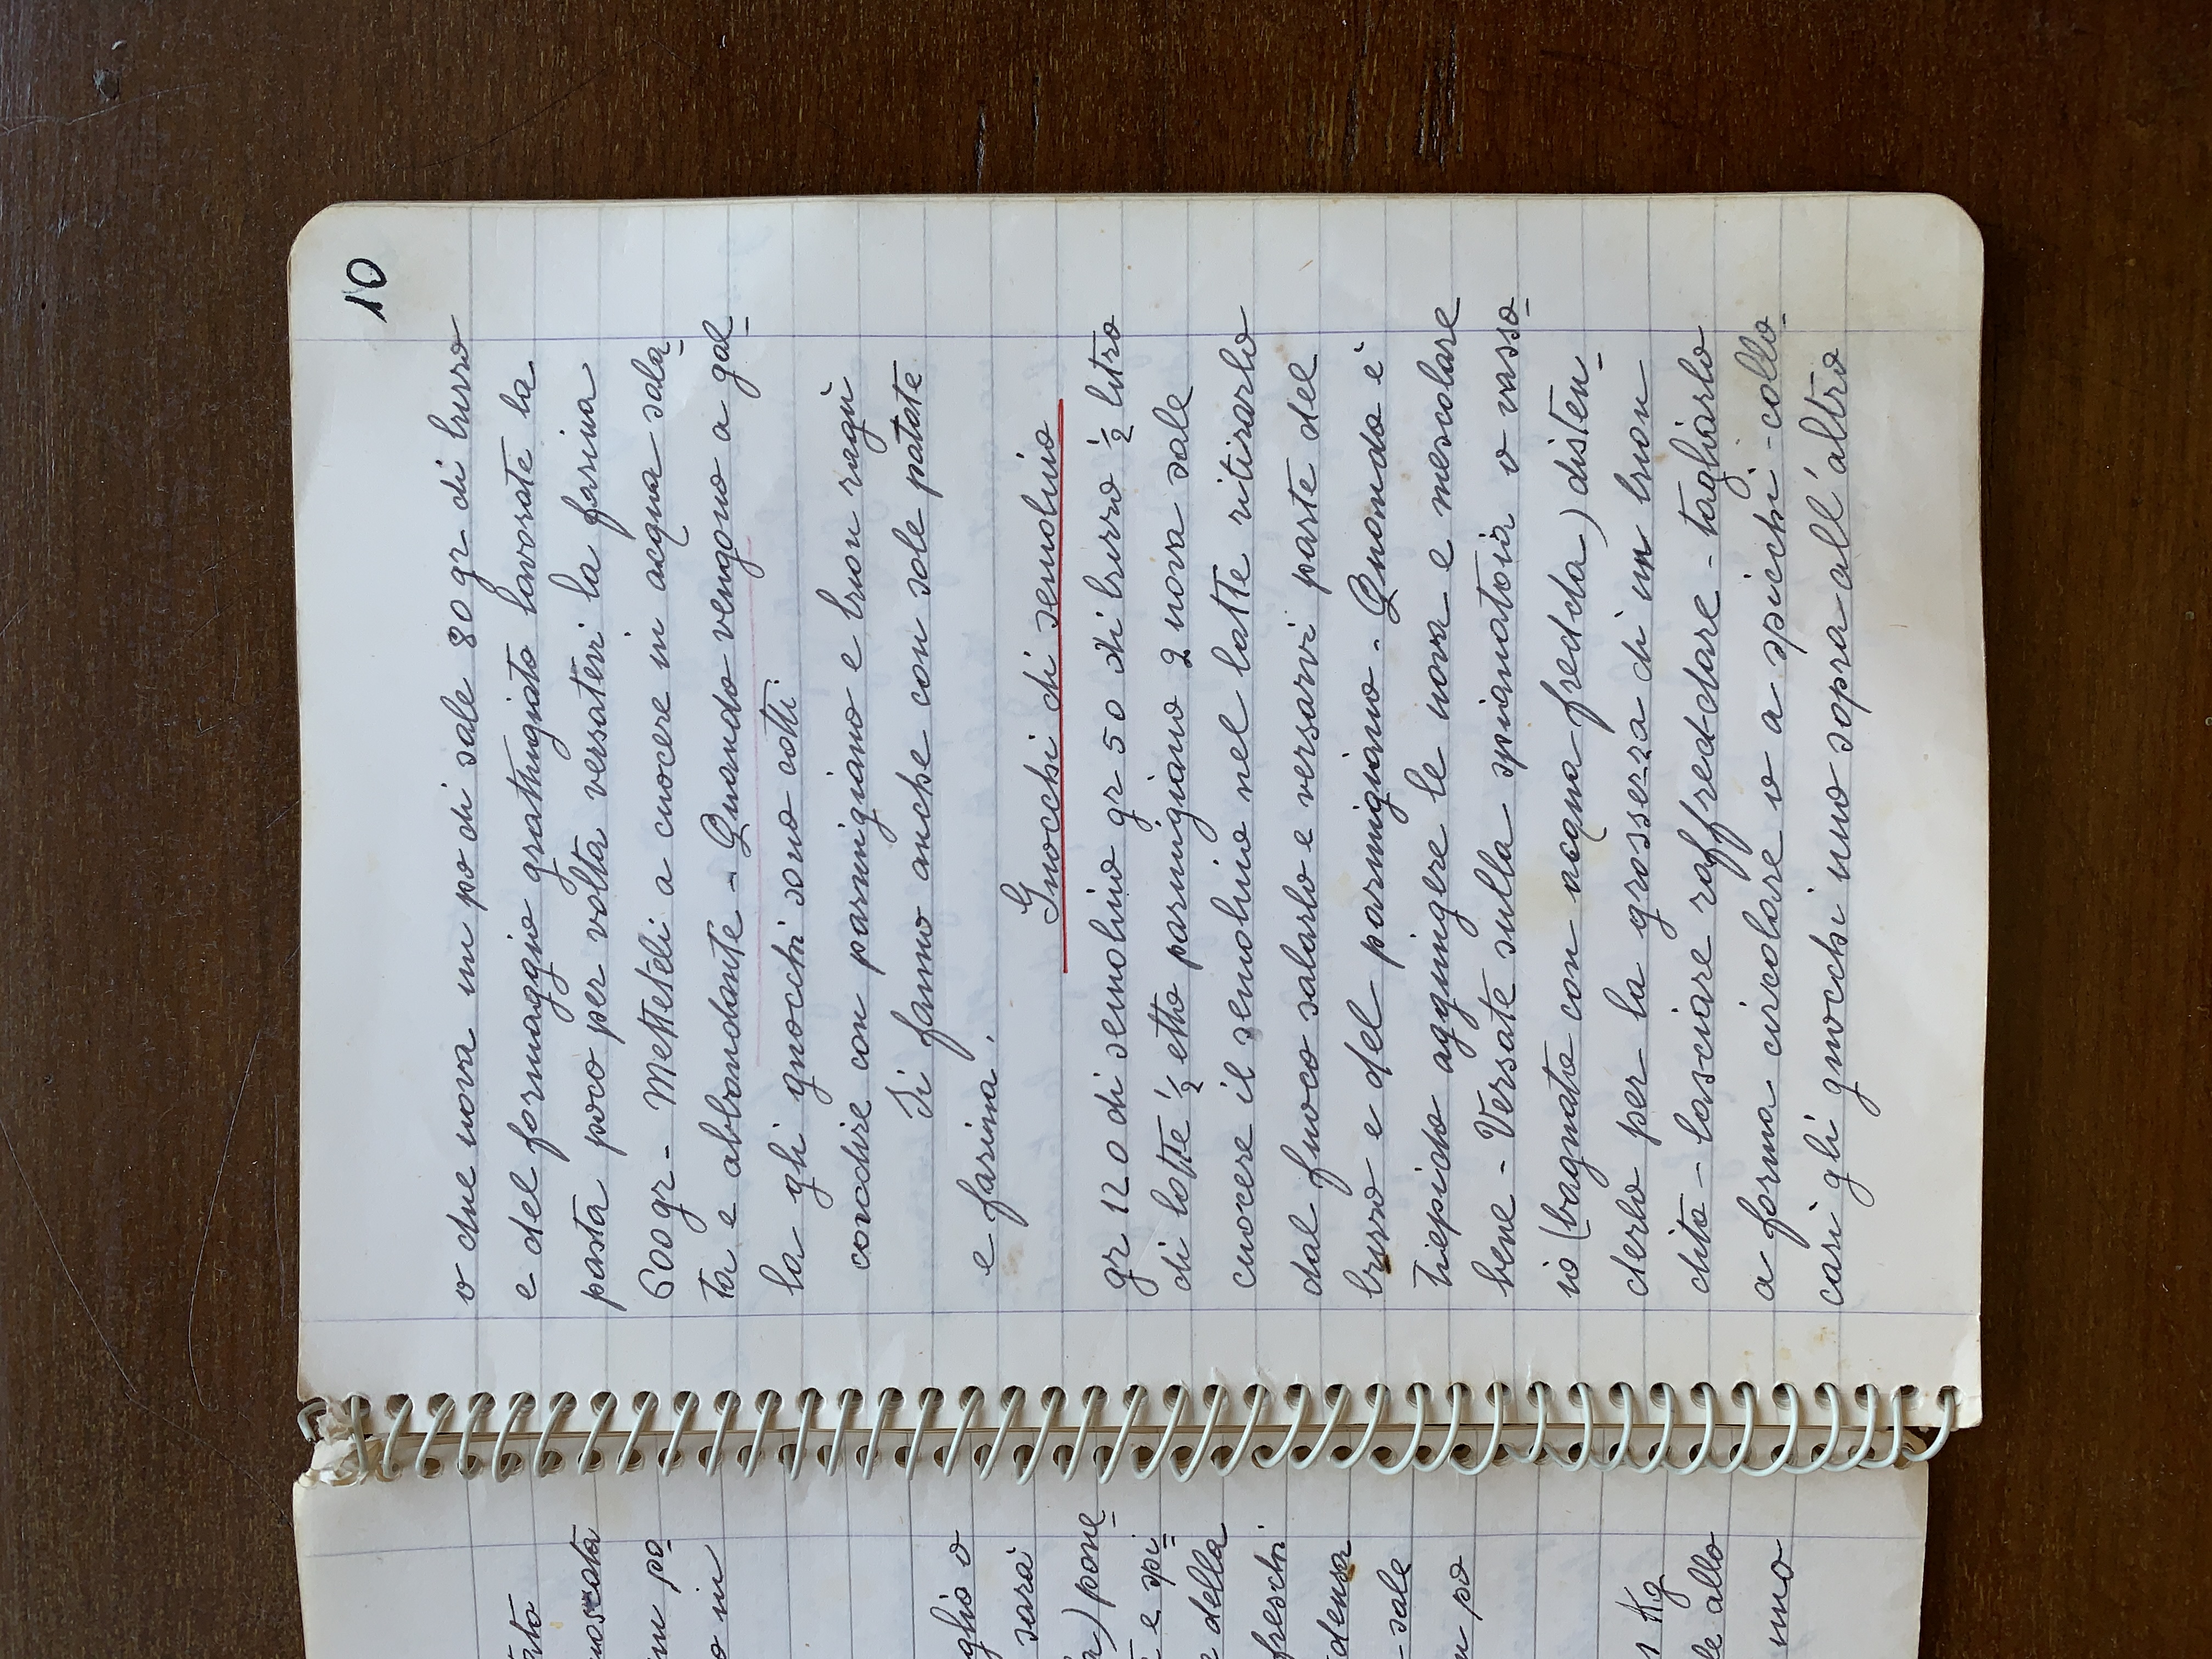 ato
noscata
un po-
o in
glio o
sarà
a) pone-
e spi=
e della
freschi
densa
- sale
n po
1 Kg
le allo
uno
10
o due uova un po di sale 80 gr di burro
e del formaggio grattugiato lavorate la
pasta poco per volta versatevi la farina
600 gr - Metteteli a cuocere in acqua sala-
ta e abbondante - Quando vengono a gal=
la gli gnocchi sono cotti
condire con parmigiano e buon ragù
Si fanno anche con sole patate
e farina .
Gnocchi di semolino
gr 120 di semolino gr 50 di burro ½ litro
di latte ½ etto parmigiano 2 uova sale
cuocere il semolino nel latte ritirarlo
dal fuoco salarlo e versarvi parte del
burro e del parmigiano - Quando è
tiepido aggiungere le uova e mescolare
bene - Versate sulla spianatoia o vasso-
io (bagnato con acqua fredda) disten-
derlo per la grossezza di un buon
dito - lasciare raffreddare - tagliarlo
a forma circolare o a spicchi - collo-
cari gli gnocchi uno sopra all'altro